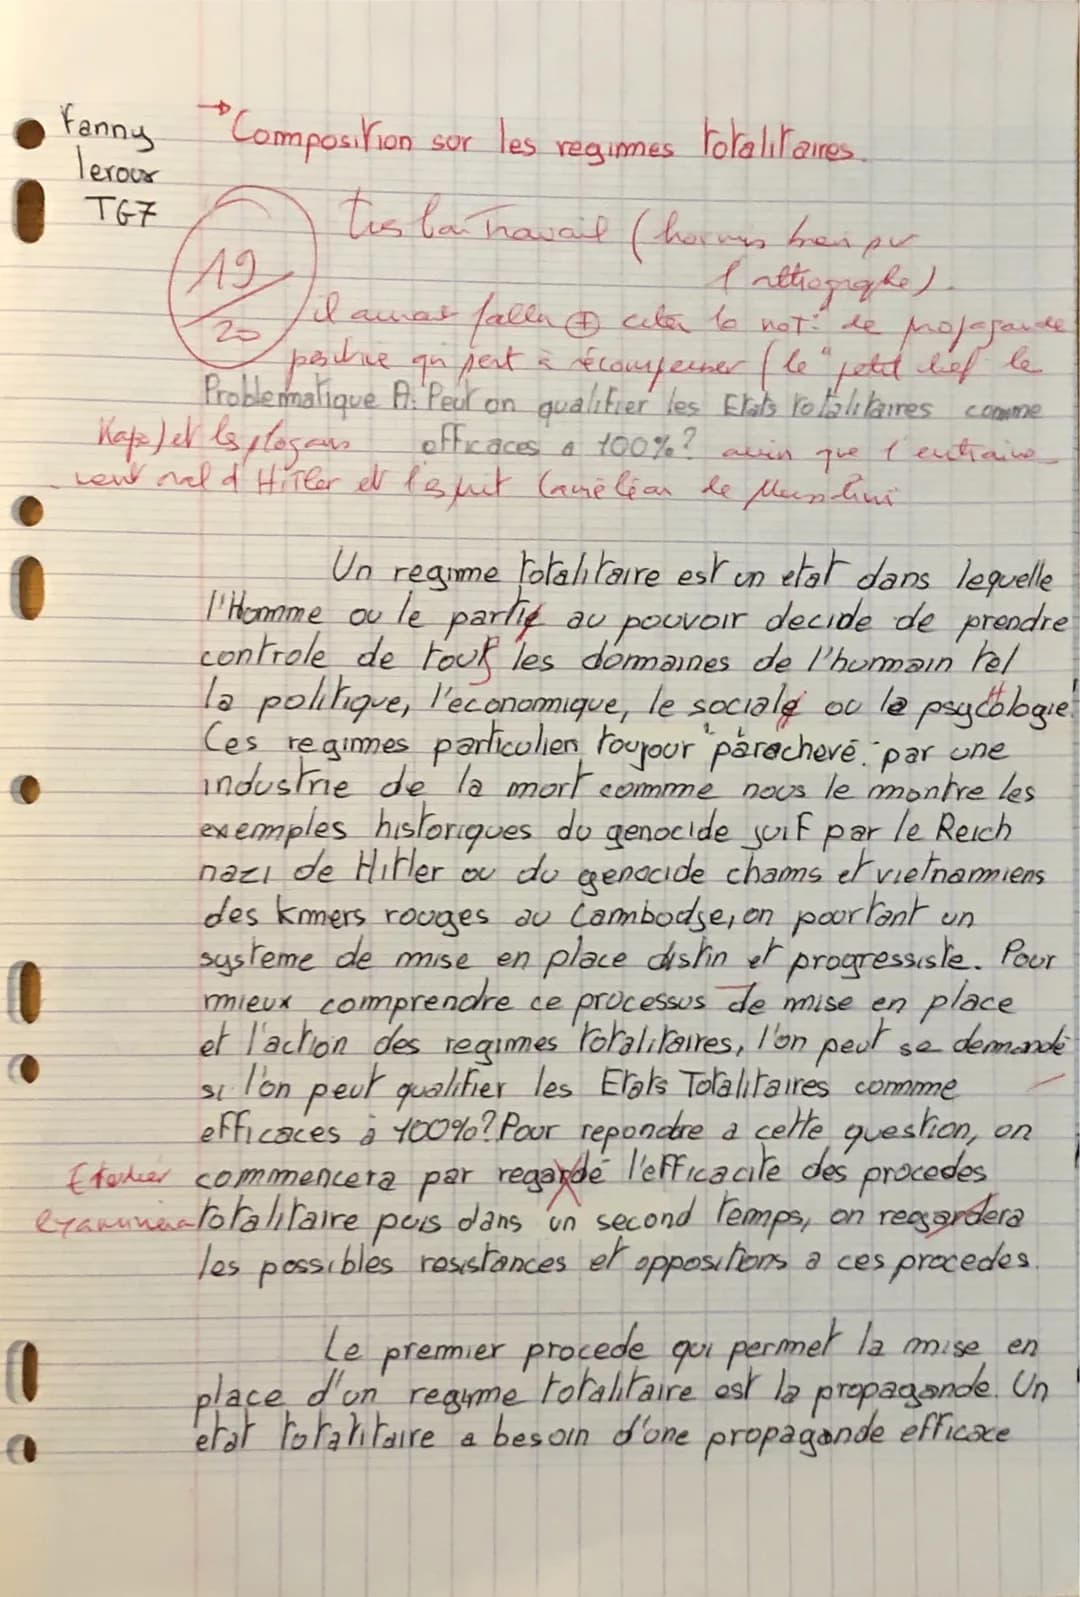 Fanny
leroux
TG7
→ Composition sur les regimes totalitaires.
19/20
très bon Travail (hormis bien pr
l'orthographe).
il aurait fallu ⊕ citer la not° de propagande
positive qui sert à récompenser (le "petit chef le
Problematique A: Peut on qualifier les Etats totalitaires comme
Kapo) et les slogans efficaces a 100%? ainsi que l'entraine-
ment oral d'Hitler et l'esprit Caméléon de Mussolini
Un regime totalitaire est un etat dans lequelle
l'Homme ou le partie au pouvoir decide de prendre
controle de tout les domaines de l'humain tel
la politique, l'economique, le sociale ou la psycologie.
Ces regimes particulien toujour parachevé par une
industrie de la mort comme nous le montre les
exemples historiques du genocide juif par le Reich
nazi de Hitler ou du genocide chams et vietnamiens
des kmers rouges au Cambodge, on pourtant un
systeme de mise en place distin et progressiste. Pour
mieux comprendre ce processus de mise en place
et l'action des regimes totalitaires, l'on peut se demandé
si l'on peut qualifier les Etats Totalitaires comme
efficaces à 100%? Pour repondre a cette question, on
Etudier commencera par regardé l'efficacite des procedes
examinera totalitaire puis dans un second temps, on reegardera
les possibles resistances et oppositions a ces procedes.
Le premier procede qui permet la mise en
place d'un regime totalitaire est la propagande. Un
etat totalitaire a besoin d'une propagande efficace